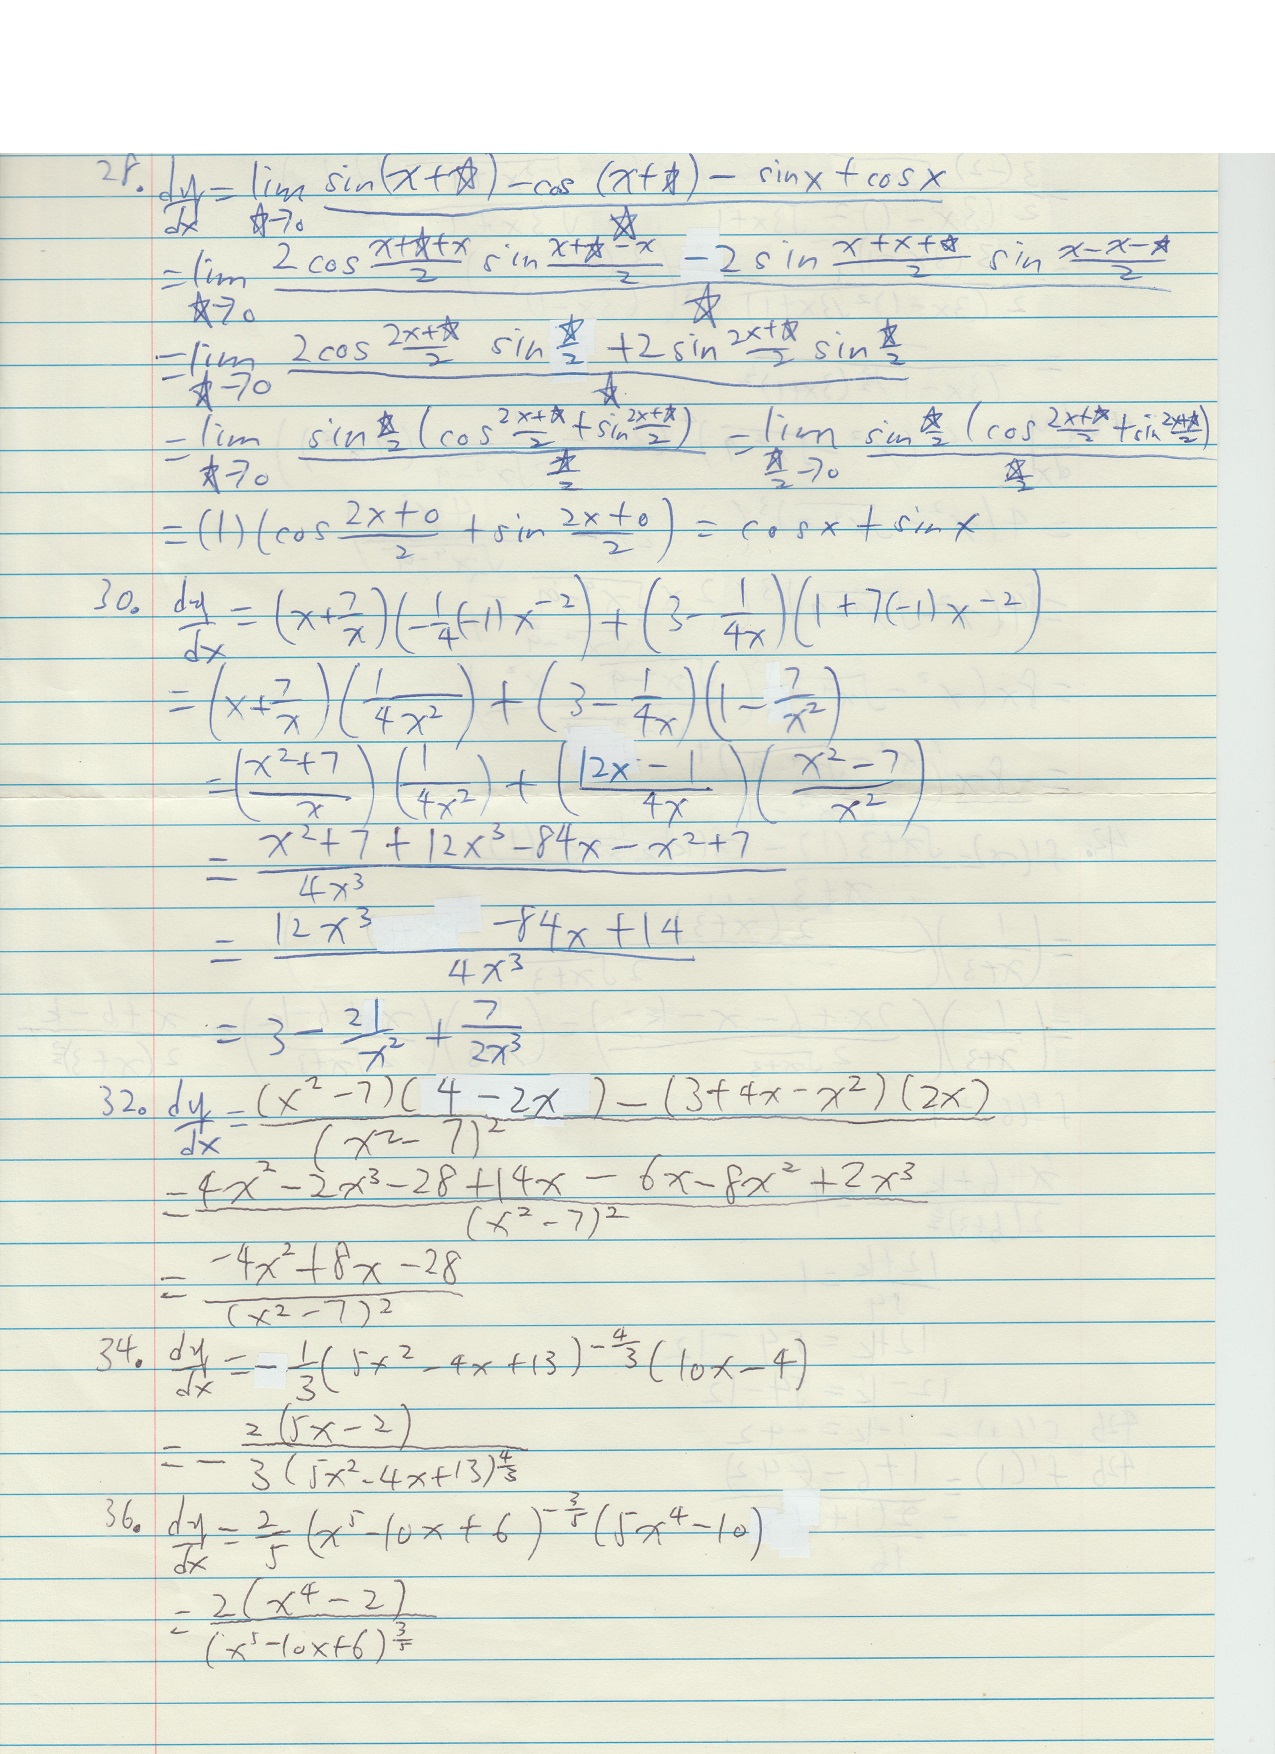 28. dy/dx = lim ☆→0 (sin(x+☆) - cos(x+☆) - sin x + cos x)/☆
= lim ☆→0 (2 cos (x+☆+x)/2 sin (x+☆-x)/2 - 2 sin (x+x+☆)/2 sin (x-x-☆)/2)/☆
= lim ☆→0 (2 cos (2x+☆)/2 sin ☆/2 + 2 sin (2x+☆)/2 sin ☆/2)/☆
= lim ☆→0 (sin ☆/2 (cos (2x+☆)/2 + sin (2x+☆)/2))/(☆/2) = lim ☆/2→0 (sin ☆/2 (cos (2x+☆)/2 + sin (2x+☆)/2))/(☆/2)
= (1)(cos (2x+0)/2 + sin (2x+0)/2) = cos x + sin x
30. dy/dx = (x+7/x)(-1/4(-1)x^-2) + (3 - 1/4x)(1+7(-1)x^-2)
= (x+7/x)(1/4x²) + (3 - 1/4x)(1 - 7/x²)
= ((x²+7)/x)(1/4x²) + ((12x-1)/4x)((x²-7)/x²)
= (x²+7+12x³-84x-x²+7)/4x³
= (12x³ -84x+14)/4x³
= 3 - 21/x² + 7/2x³
32. dy/dx = ((x²-7)(4-2x) - (3+4x-x²)(2x))/(x²-7)²
= (4x²-2x³-28+14x - 6x-8x²+2x³)/(x²-7)²
= (-4x²+8x-28)/(x²-7)²
34. dy/dx = -1/3(5x²-4x+13)^-4/3 (10x-4)
= - 2(5x-2)/3(5x²-4x+13)^4/3
36. dy/dx = 2/5 (x⁵-10x+6)^-3/5 (5x⁴-10)
= 2(x⁴-2)/(x⁵-10x+6)^3/5